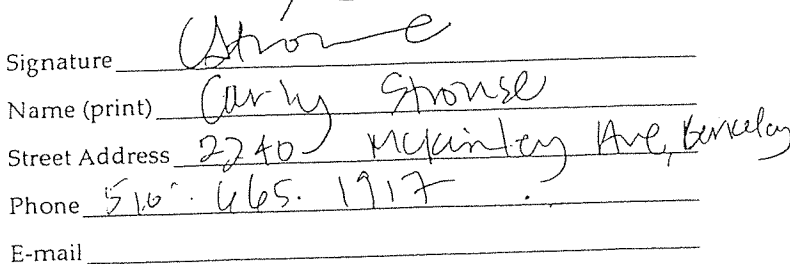 Signature CStrouse
Name (print) Carly Strouse
Street Address 2240 McKinley Ave, Berkeley
Phone 510. 665. 1917
E-mail